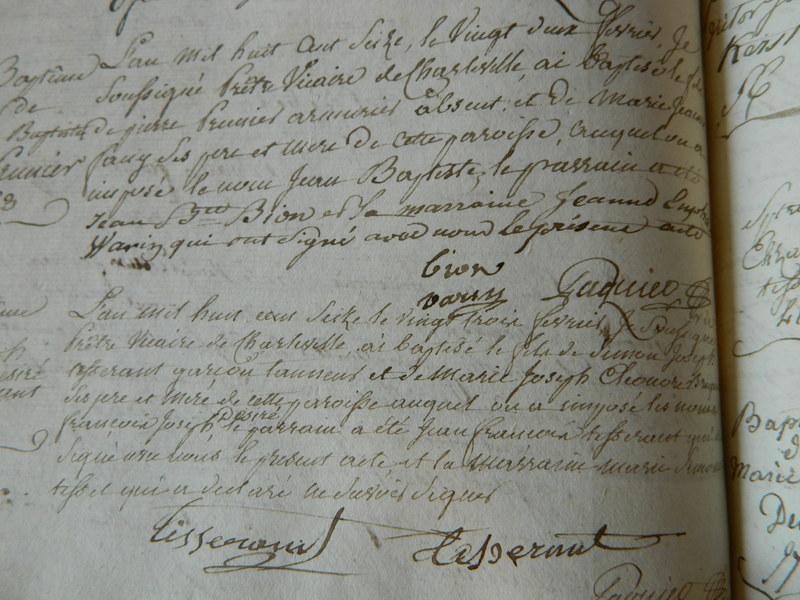 L'an mil huit cent seize, le vingt deux fevrier, Je
Baptême
soussigné Prêtre Vicaire de Charleville, ai baptisé le fils
de
de pierre Prunier armurier absent, et de Marie Jeanne
Baptiste
ses pere et mere de cette paroisse, auquel on a
Prunier
imposé le nom Jean Baptiste, le parrain a été
Jean Btte Bion et la marraine Jeanne
Warin qui ont signé avec nous le présent acte
bion
varin Paquier
L'an mil huit cent seize le vingt trois fevrier, Je soussigné
Prêtre Vicaire de Charleville, ai baptisé le fils de Simon Joseph
tisserant garçon tanneur et de Marie Joseph Eleonore
ses pere et mere de cette paroisse auquel on a imposé les noms
françois Joseph Desiré le parrain a été Jean françois tisserant qui a
signé avec nous le present acte et la marraine marie
qui a declaré ne savoir signer
tisserant tisserant
Paquier
Baptême
de
Marie